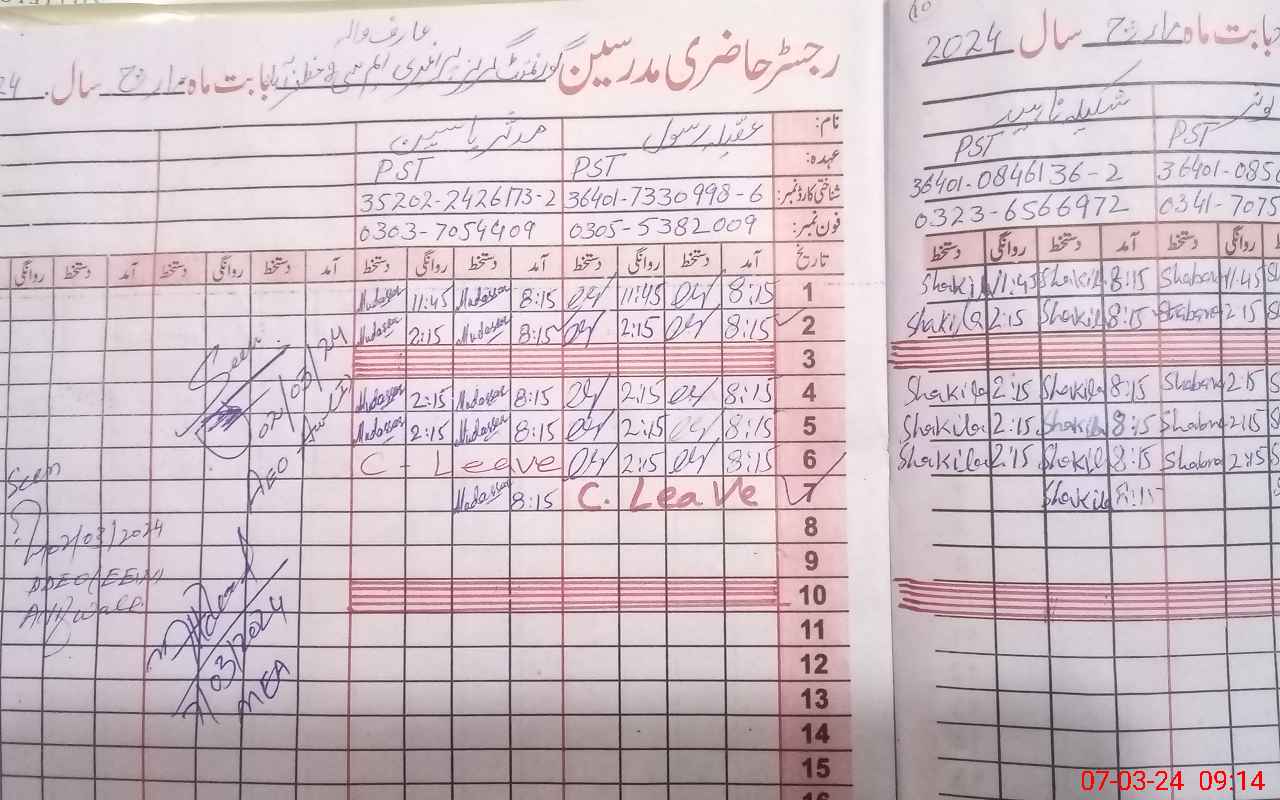 رجسٹر حاضری مدرسین گورنمنٹ بابت ماہ مارچ سال 24
عارف والہ
نام: عقیلہ رسول مدثر یاسین
عہدہ: PST PST
شناختی کارڈ نمبر: 36401-7330998-6 35202-2426173-2
فون نمبر: 0305-5382009 0303-7054409
تاریخ آمد دستخط روانگی دستخط آمد دستخط روانگی دستخط آمد دستخط روانگی دستخط آمد دستخط روانگی
1 8:15 11:45 8:15 Mudassar 11:45 Mudassar
2 8:15 2:15 8:15 Mudassar 2:15 Mudassar
3
4 8:15 2:15 8:15 Mudassar 2:15 Mudassar
5 8:15 2:15 8:15 Mudassar 2:15 Mudassar
6 8:15 2:15 C - Leave
7 C. Leave 8:15 Mudassar
8
9
10
11
12
13
14
15
16
Seen
02/03/24
AEO
Seen
02/03/2024
DDEO (EE-W)
Arifwala
7/03/2024
MEA
10
بابت ماہ مارچ سال 2024
شکیلہ ناہید
PST PST
36401-0846136-2 36401-085
0323-6566972 0341-7075
دستخط روانگی دستخط آمد دستخط روانگی
Shakila 11:45 Shakila 8:15 Shabana 11:45
Shakila 2:15 Shakila 8:15 Shabana 2:15
Shakila 2:15 Shakila 8:15 Shabana 2:15
Shakila 2:15 Shakila 8:15 Shabana 2:15
Shakila 2:15 Shakila 8:15 Shabana 2:15
Shakila 8:15
07-03-24 09:14